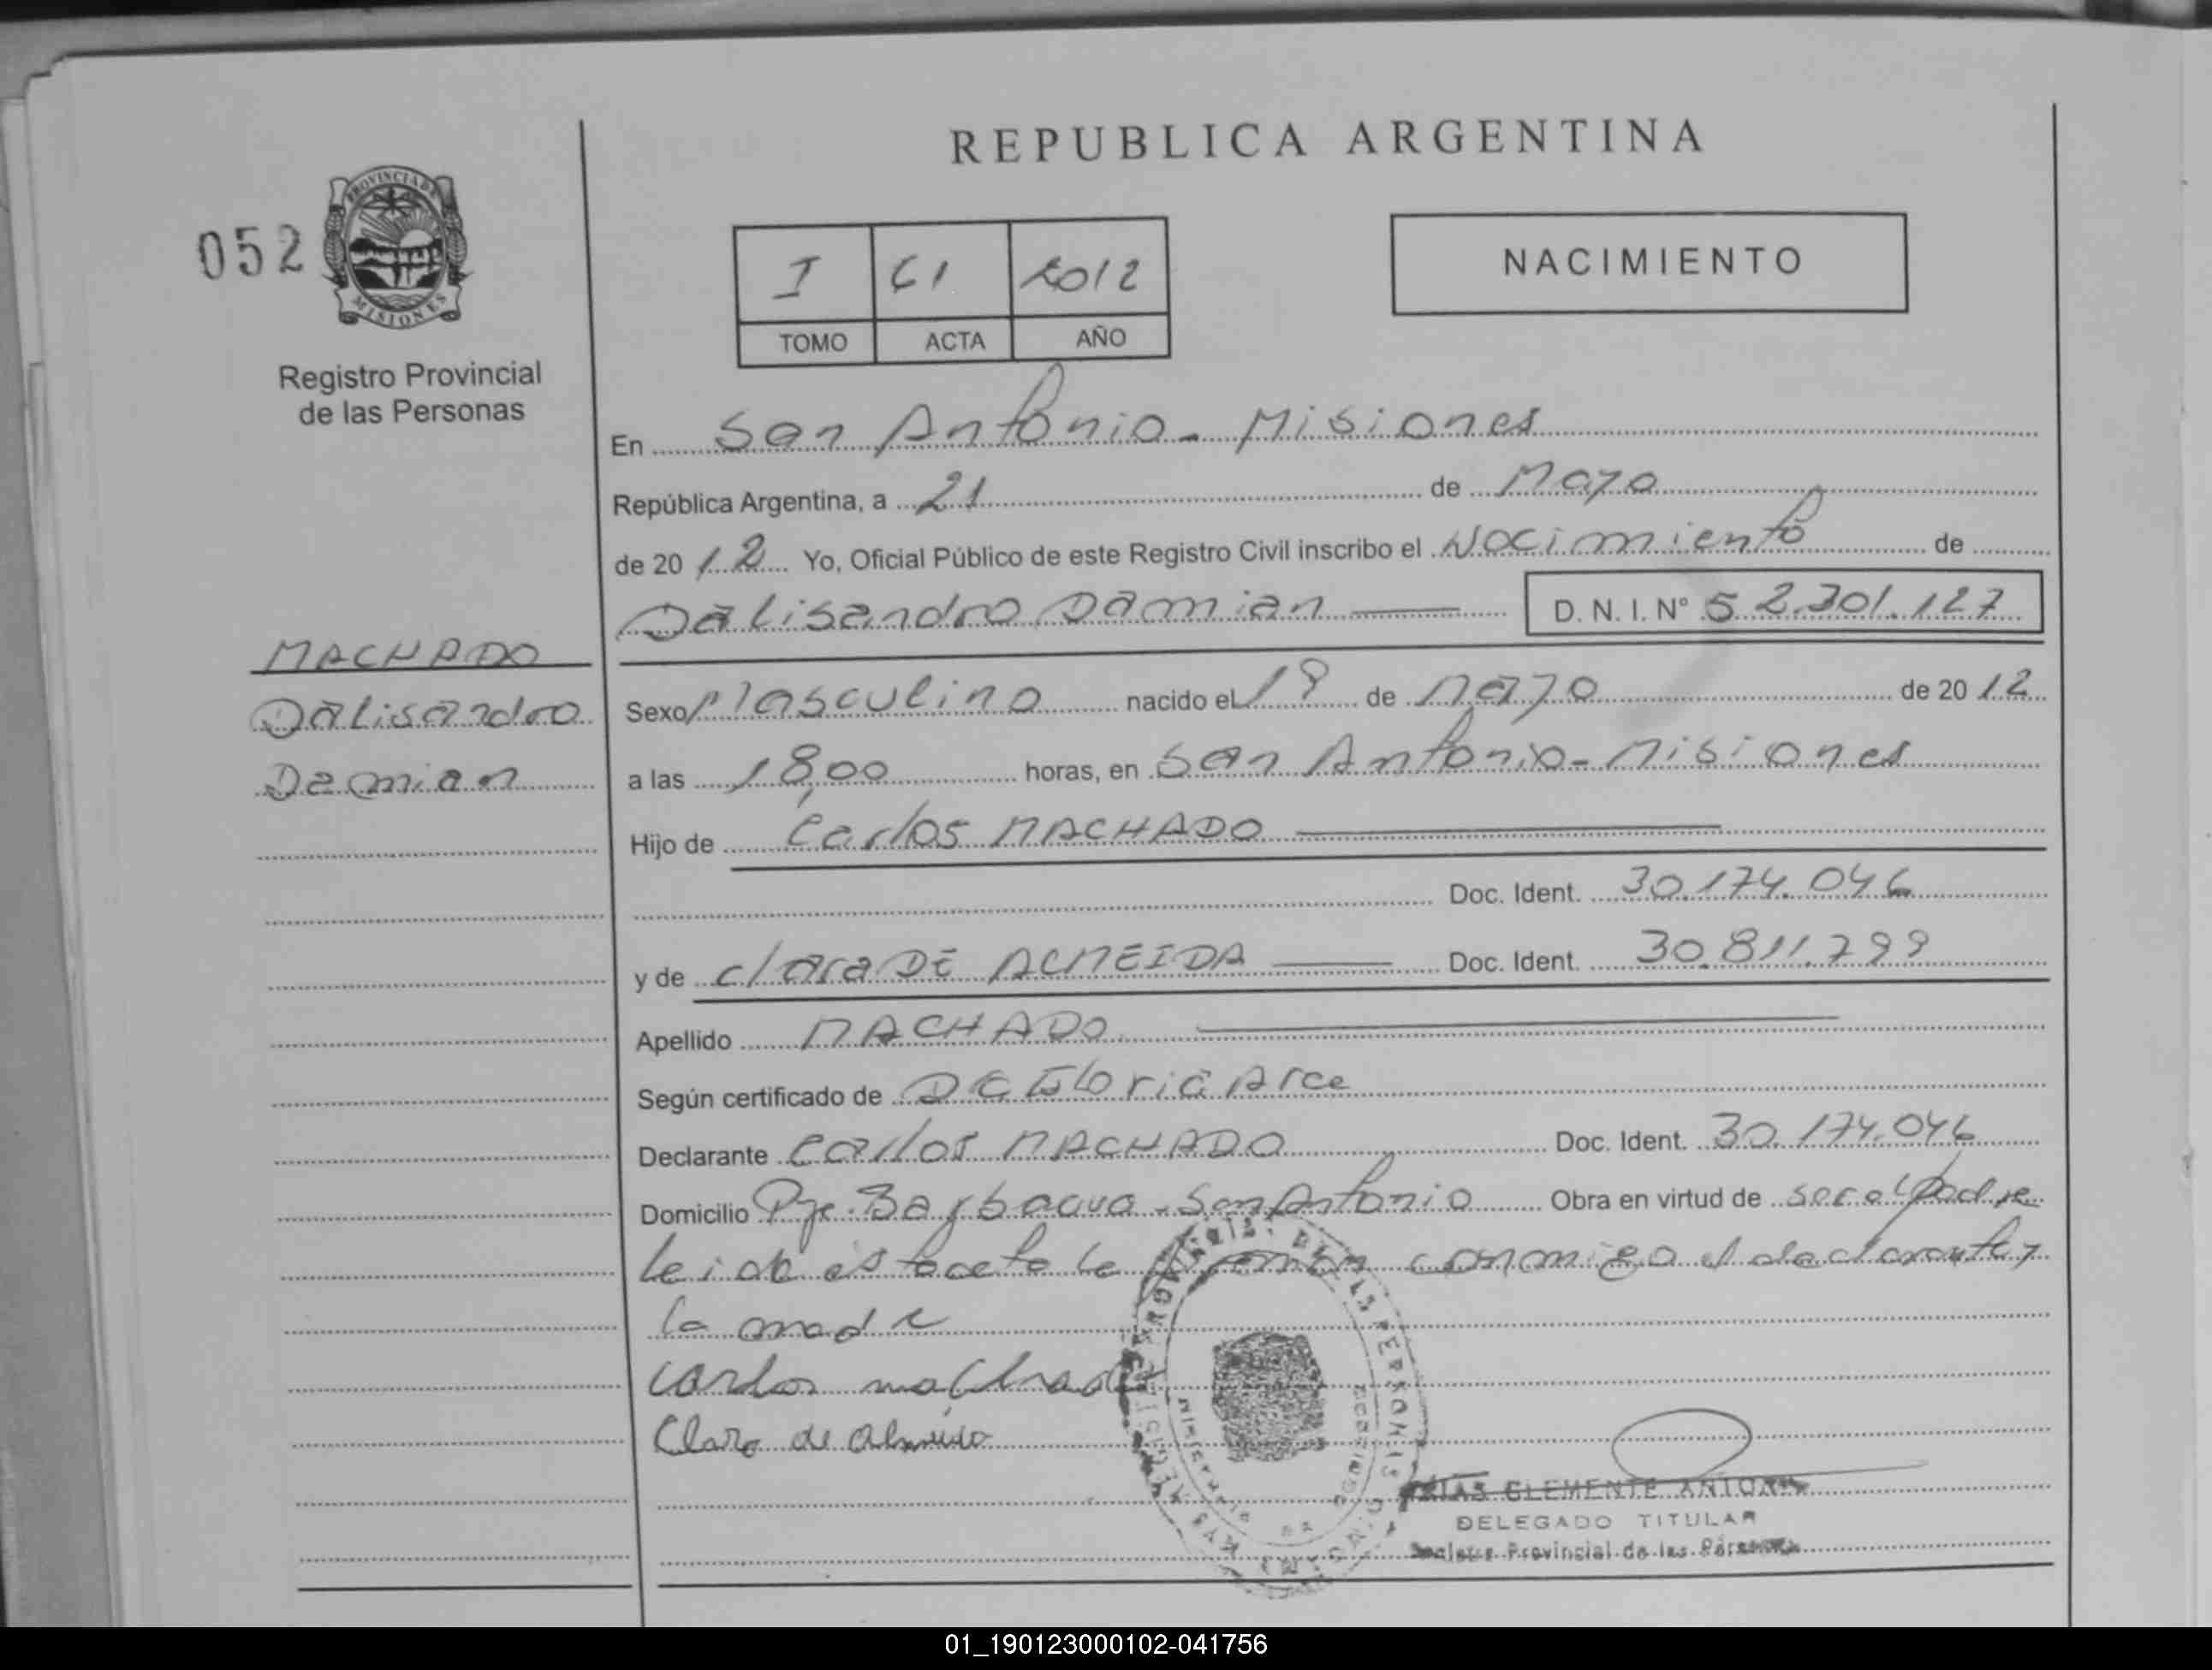 REPUBLICA ARGENTINA
052
PROVINCIA DE
MISIONES
Registro Provincial
de las Personas
I 61 2012
TOMO ACTA AÑO
NACIMIENTO
En San Antonio - Misiones
República Argentina, a 21 de Mayo
de 20 12 Yo, Oficial Público de este Registro Civil inscribo el Nacimiento de
Dalisandro Damian D. N. I. N° 52.301.127
MACHADO
Dalisandro
Damian
Sexo Masculino nacido el 19 de Mayo de 20 12
a las 18,00 horas, en San Antonio - Misiones
Hijo de Carlos MACHADO
Doc. Ident. 30.174.046
y de Clara DE ALMEIDA Doc. Ident. 30.811.799
Apellido MACHADO
Según certificado de Gloria Arce
Declarante Carlos MACHADO Doc. Ident. 30.174.046
Domicilio Pje. Barbacua - San Antonio Obra en virtud de ser el padre
leida esta acta la firman conmigo el declarante y
la madre
Carlos machado
Clara de Almeida
CLEMENTE ANTONIO
DELEGADO TITULAR
Provincial de las Personas
01_190123000102-041756